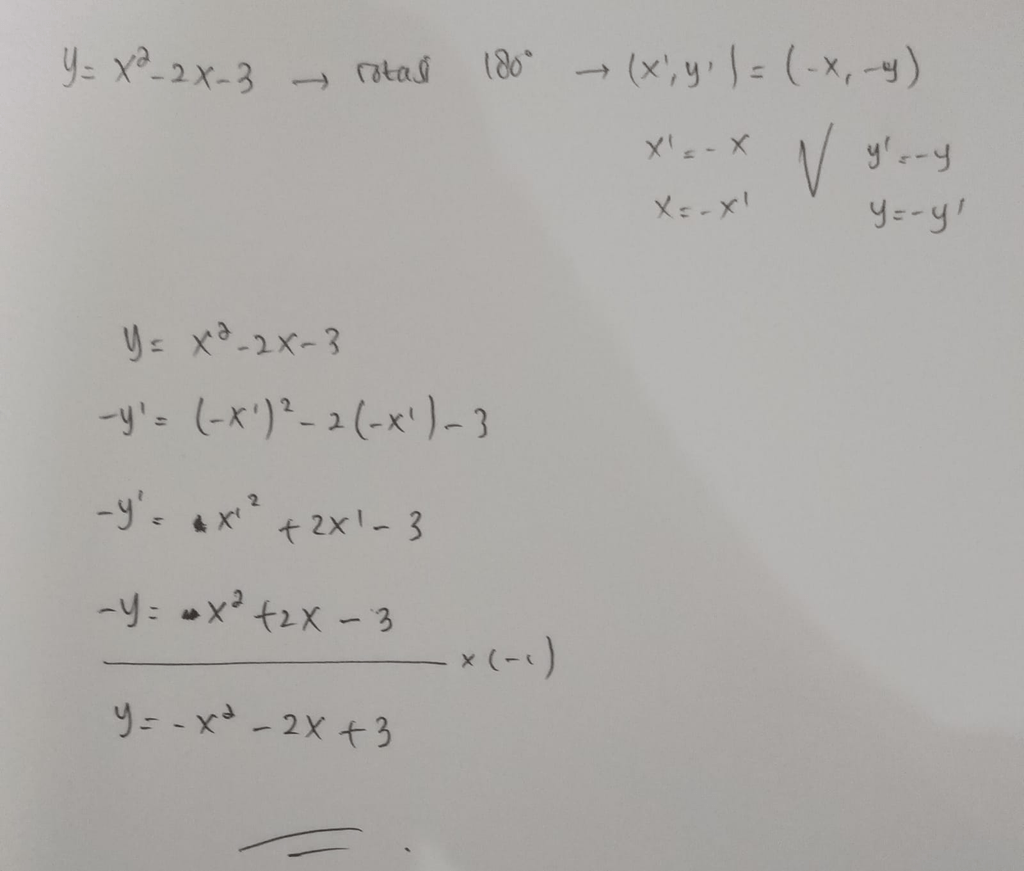 y = x² - 2x - 3 → rotasi 180° → (x', y') = (-x, -y)
x' = -x V y' = -y
x = -x' y = -y'
y = x² - 2x - 3
-y' = (-x')² - 2(-x') - 3
-y' = x'² + 2x' - 3
-y = x² + 2x - 3
x (-1)
y = -x² - 2x + 3